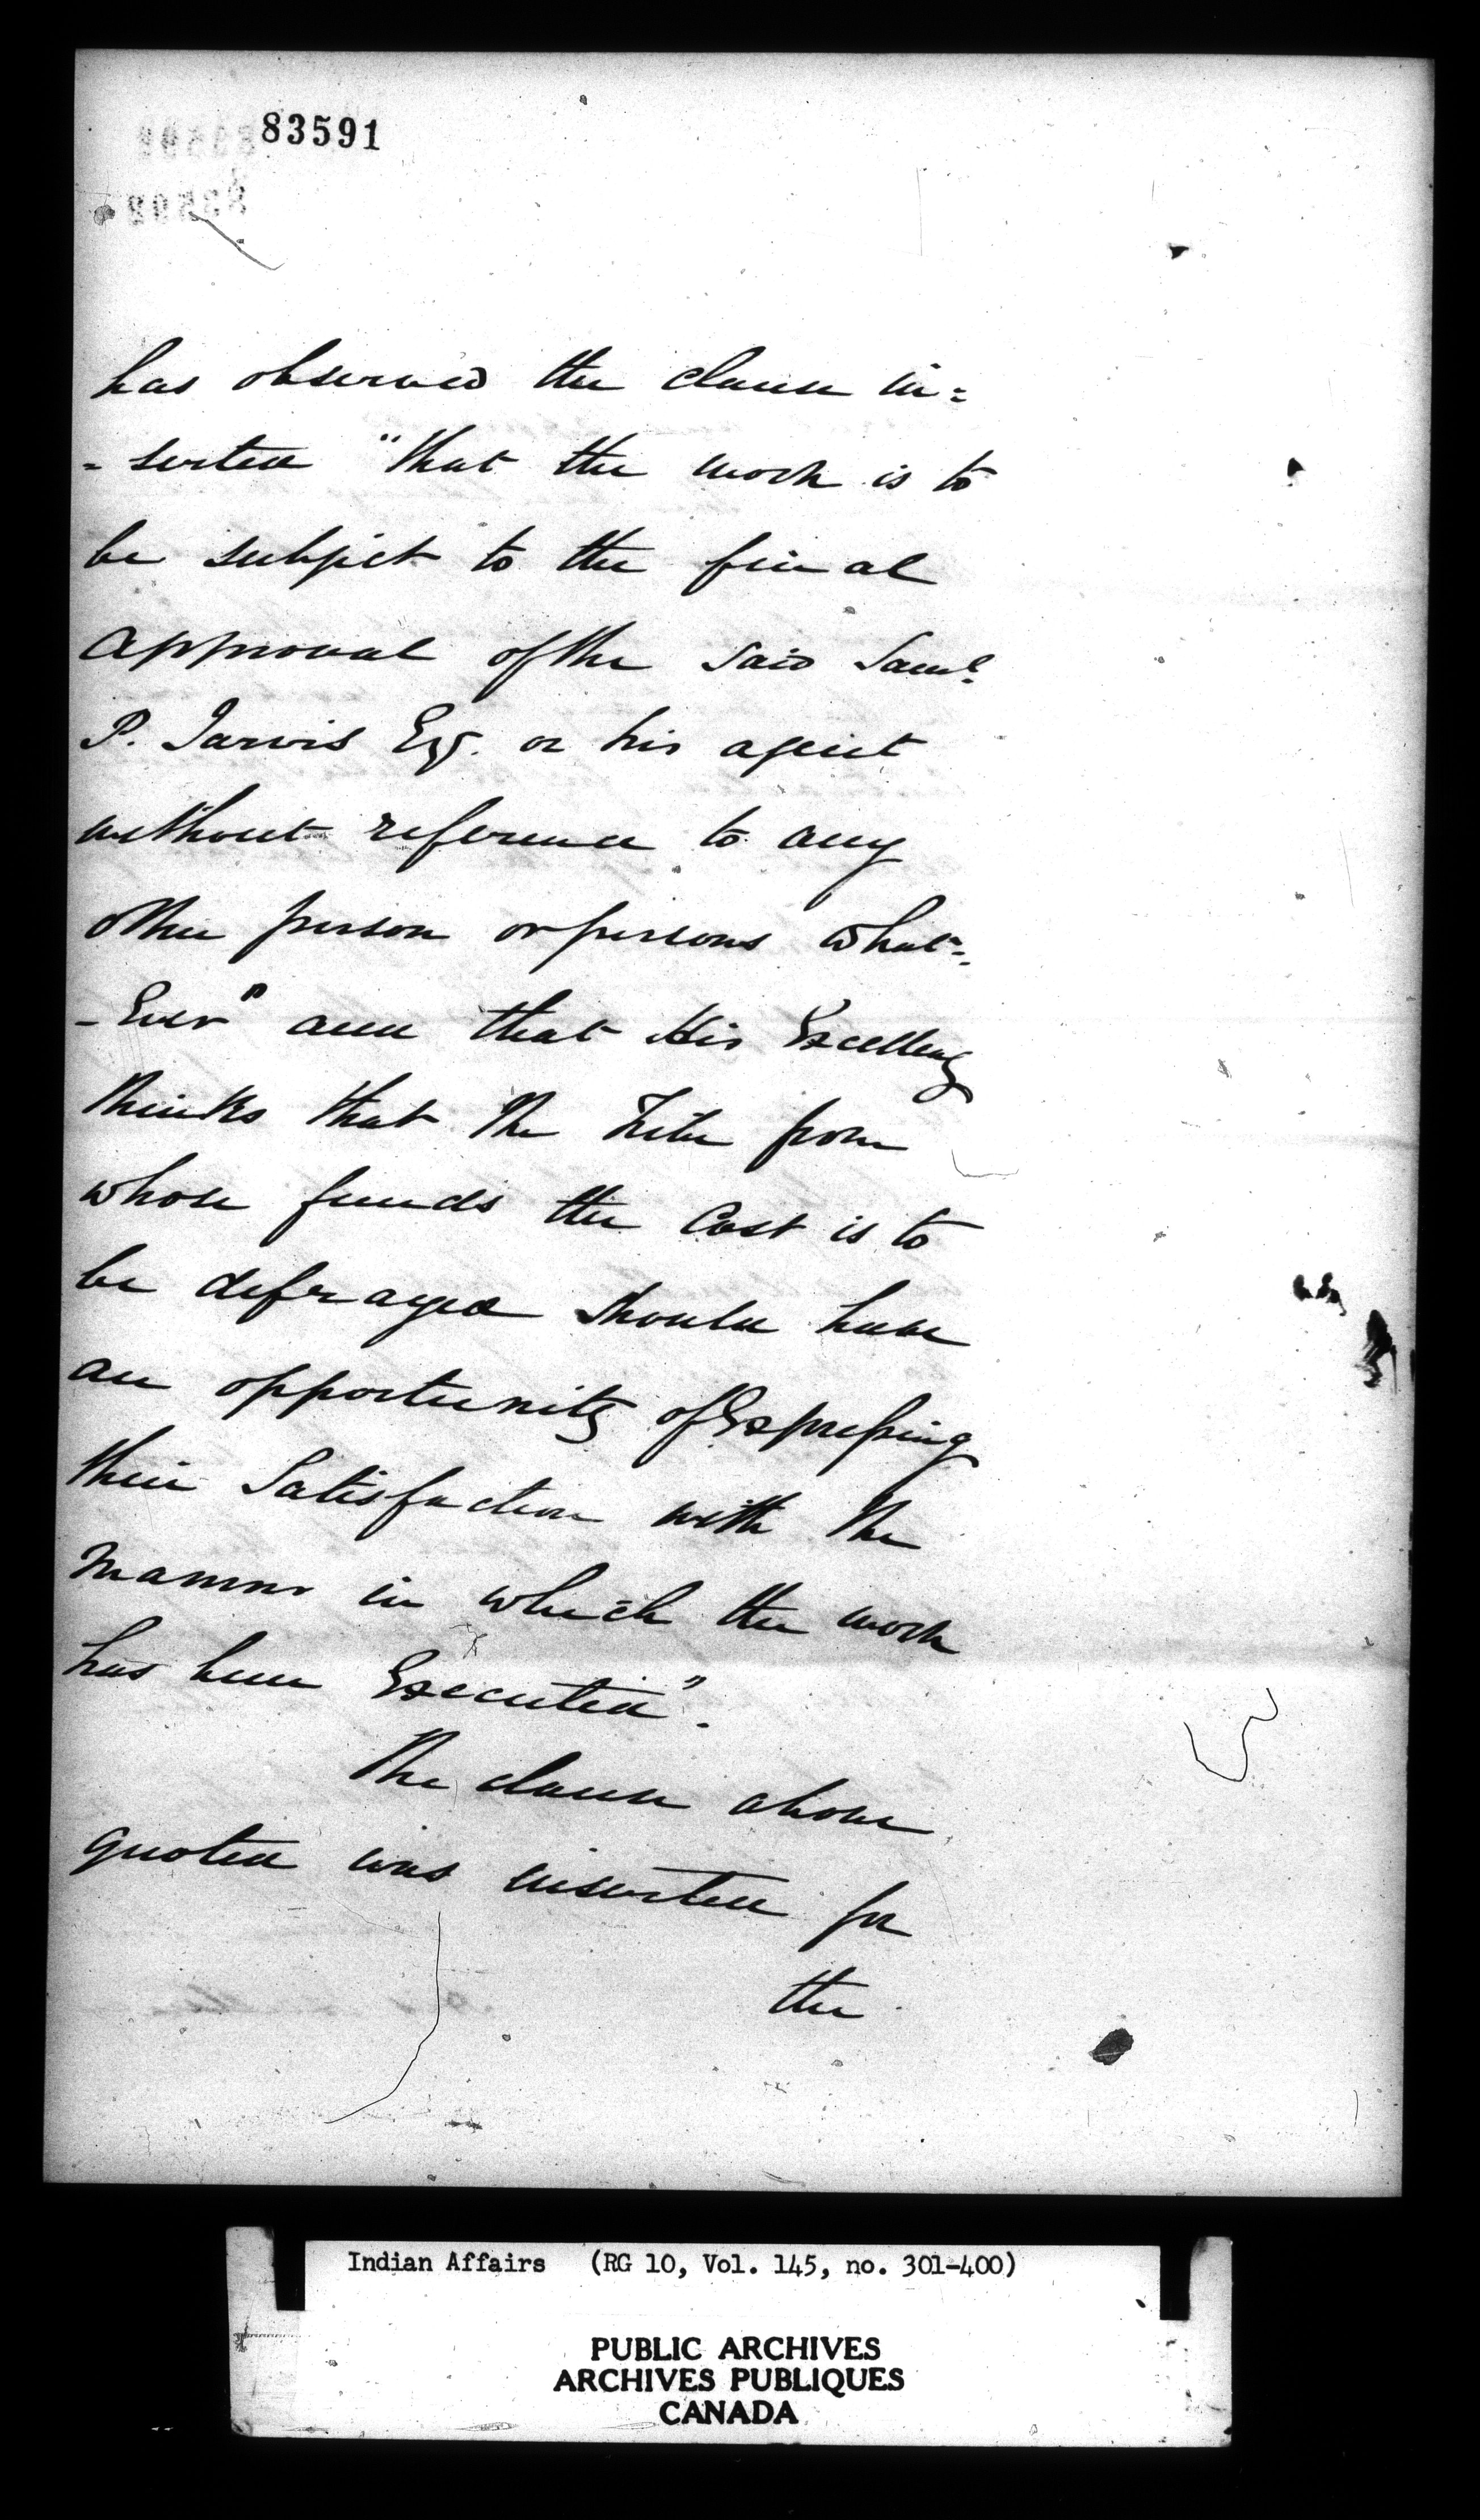 83591
has observed the clause in=
=serted "that the work is to
be subject to the final
approval of the said Saml.
P. Jarvis Esq. or his agent
without reference to any
other person or persons what=
-Ever" and that His Excellency
thinks that the Tribe from
whose funds the Cost is to
be defrayed should have
an opportunity of Expressing
their Satisfaction with the
manner in which the work
has been Executed".
The clause above
quoted was inserted for
the
Indian Affairs (RG 10, Vol. 145, no. 301-400)
PUBLIC ARCHIVES
ARCHIVES PUBLIQUES
CANADA